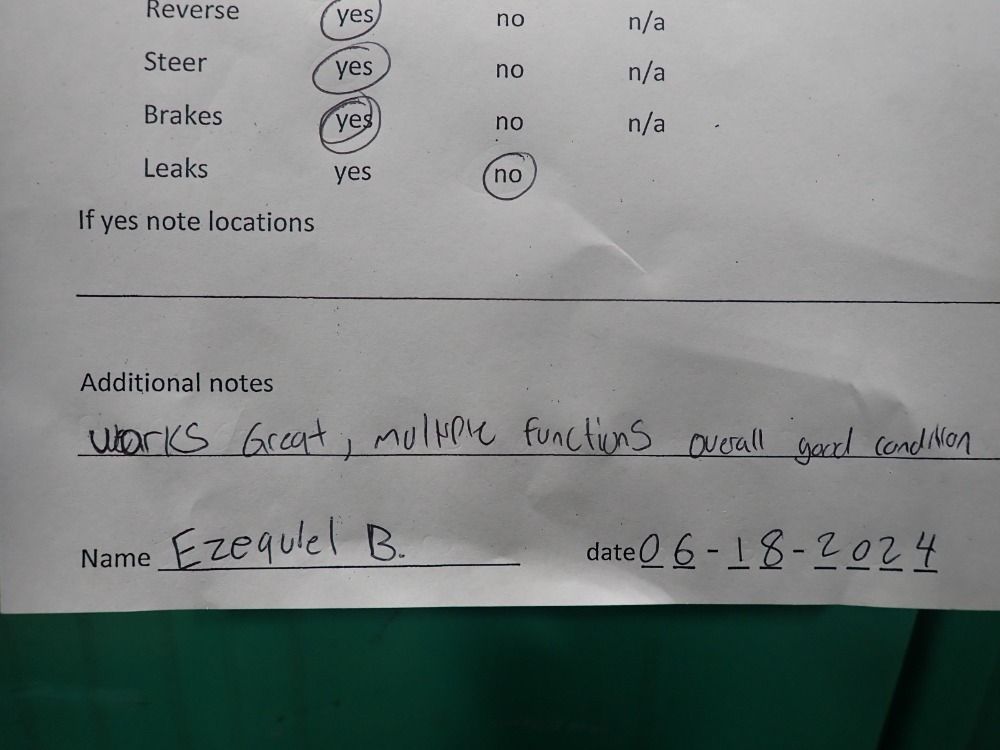 Reverse yes no n/a
Steer yes no n/a
Brakes yes no n/a
Leaks yes no
If yes note locations
Additional notes
works Great, multiple functions overall good condition
Name Ezequiel B. date 06-18-2024